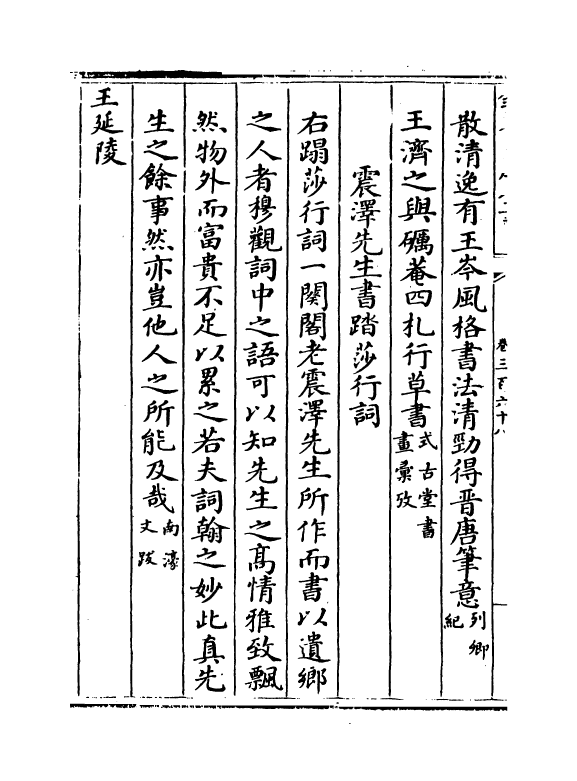 散清逸有王岑風格書法清勁得晉唐筆意列卿紀
王濟之與礪菴四札行草書式古堂書畫彙攷
震澤先生書踏莎行詞
右蹋莎行詞一闋閣老震澤先生所作而書以遺鄉
之人者穆觀詞中之語可以知先生之髙情雅致飄
然物外而富貴不足以累之若夫詞翰之妙此真先
生之餘事然亦豈他人之所能及哉南濠文跋
王延陵
卷三百六十八